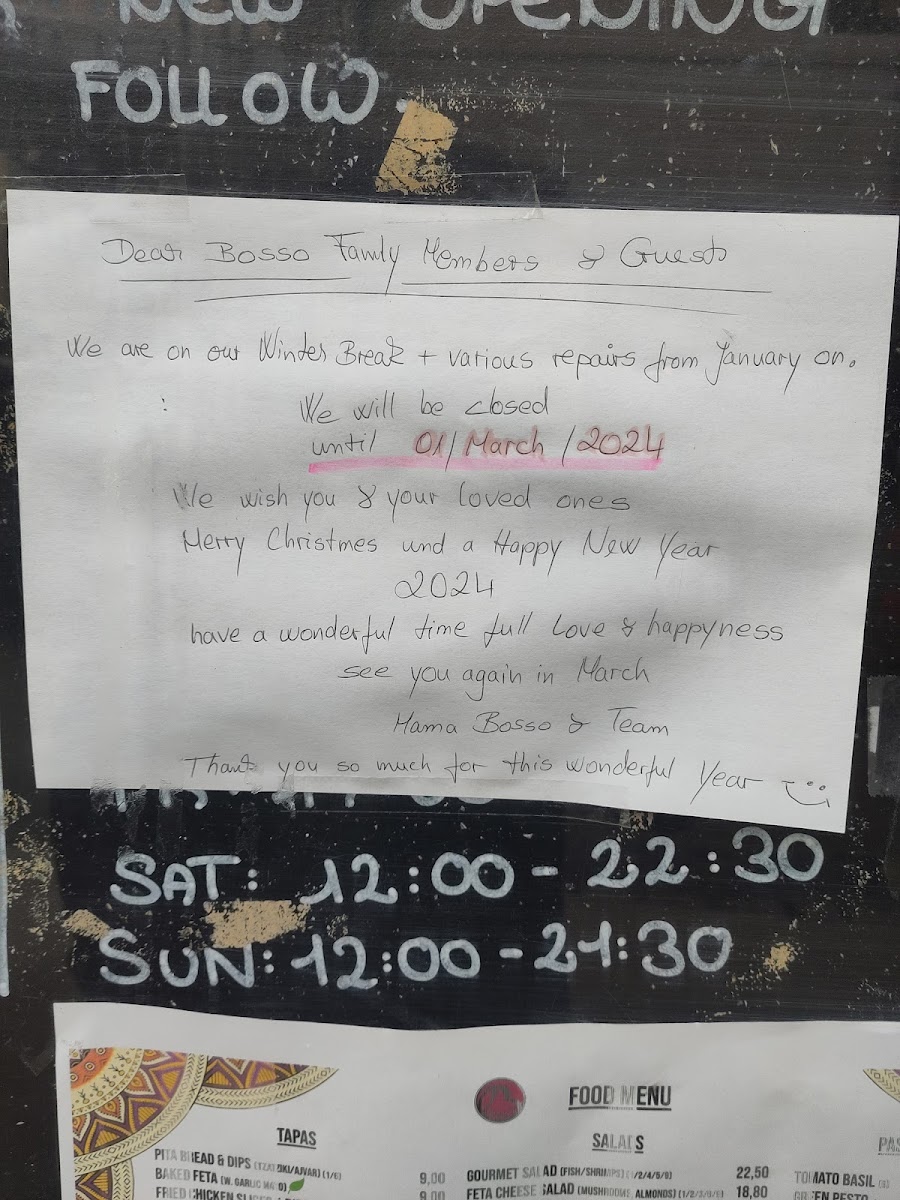 NEW OPENING
FOLLOW.
Dear Bosso Family Members & Guests
We are on our Winter Break + various repairs from January on.
We will be closed
until 01/March/2024
We wish you & your loved ones
Merry Christmes und a Happy New Year
2024
have a wonderful time full Love & happyness
see you again in March
Mama Bosso & Team
Thank you so much for this wonderful Year
SAT: 12:00 - 22:30
SUN: 12:00 - 21:30
FOOD MENU
TAPAS
PITA BREAD & DIPS (TZATZIKI/AJVAR) (1/6)
BAKED FETA (W. GARLIC 9,00
FRIED CHICKEN 9,00
SALADS
GOURMET SALAD (FISH/SHRIMPS) 22,50
FETA CHEESE SALAD (MUSHROOMS, ALMONDS) 18,80
TOMATO BASIL
GREEN PESTO